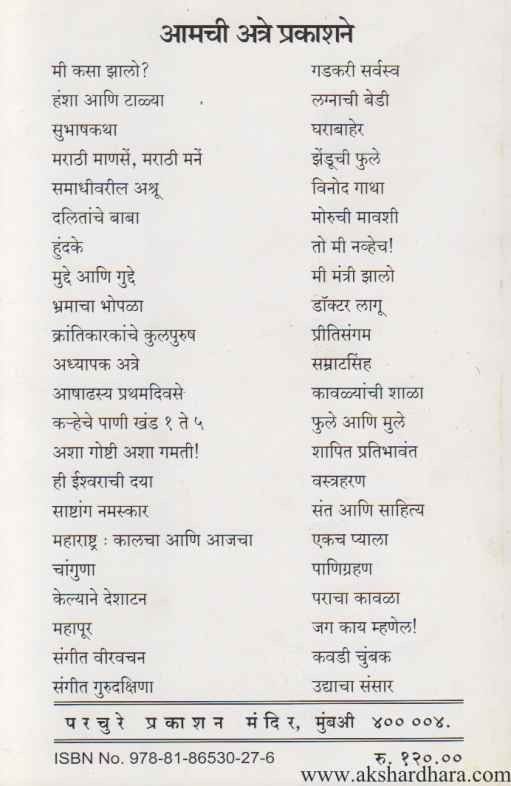 आमची अत्रे प्रकाशने
मी कसा झालो?
हंशा आणि टाळ्या
सुभाषकथा
मराठी माणसें, मराठी मनें
समाधीवरील अश्रू
दलितांचे बाबा
हुंदके
मुद्दे आणि गुद्दे
भ्रमाचा भोपळा
क्रांतिकारकांचे कुलपुरुष
अध्यापक अत्रे
आषाढस्य प्रथमदिवसे
कऱ्हेचे पाणी खंड १ ते ५
अशा गोष्टी अशा गमती!
ही ईश्वराची दया
साष्टांग नमस्कार
महाराष्ट्र : कालचा आणि आजचा
चांगुणा
केल्याने देशाटन
महापूर
संगीत वीरवचन
संगीत गुरुदक्षिणा
गडकरी सर्वस्व
लग्नाची बेडी
घराबाहेर
झेंडूची फुले
विनोद गाथा
मोरुची मावशी
तो मी नव्हेच!
मी मंत्री झालो
डॉक्टर लागू
प्रीतिसंगम
सम्राटसिंह
कावळ्यांची शाळा
फुले आणि मुले
शापित प्रतिभावंत
वस्त्रहरण
संत आणि साहित्य
एकच प्याला
पाणिग्रहण
पराचा कावळा
जग काय म्हणेल!
कवडी चुंबक
उद्याचा संसार
परचुरे प्रकाशन मंदिर, मुंबअी ४०० ००४.
ISBN No. 978-81-86530-27-6
रु. १२०.००
www.akshardhara.com